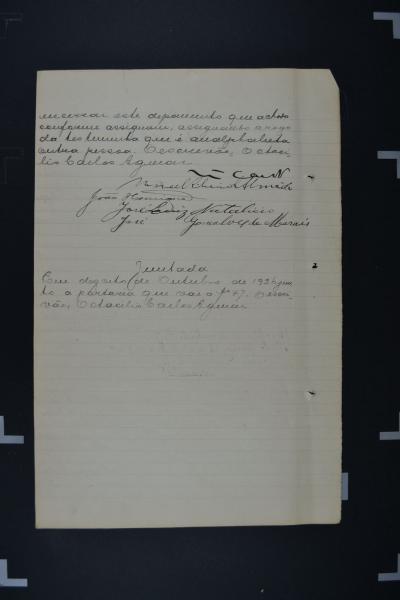 encerrar este depoimento que achou
conforme assignam, assignando a rogo
da testemunha que é analphabeta
outra pessoa. O escrivão, Octaci-
lio Carlos Aguiar
João Henrique
José Luiz Natalicio
José Gonçalves de Moraes
Juntada
Em dezoito de Outubro de jun-
to a portaria que vae a fs 47. O escri-
vão, Octacilio Carlos Aguiar